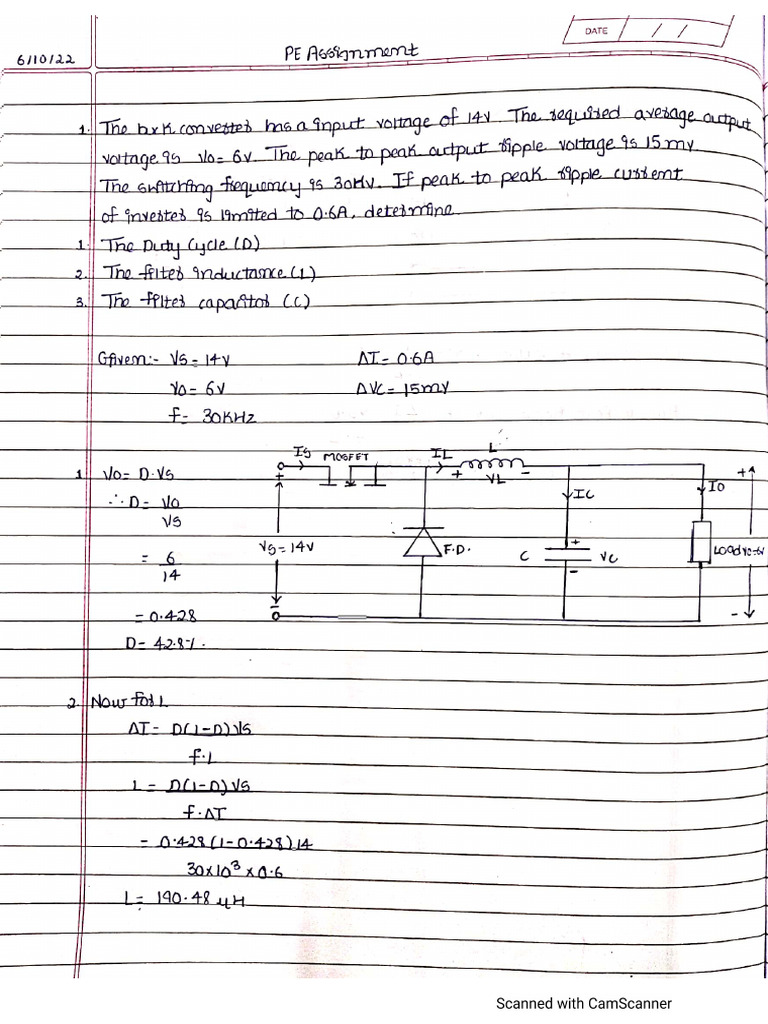 DATE / /
6/10/22
PE Assignment
1. The buk converter has a input voltage of 14v. The required average output
voltage is Vo= 6v. The peak to peak output ripple voltage is 15mv
The switching frequency is 30Hv. If peak to peak ripple current
of inverter is limited to 0.6A, determine
1. The Duty Cycle (D)
2. The filter inductance (L)
3. The filter capacitor (C)
Given:- Vs=14v ΔI=0.6A
Vo= 6v ΔVC=15mv
f= 30KHz
1 Vo= D.Vs
∴D= Vo
Vs
= 6
14
= 0.428
D= 42.8%.
Is MOSFET IL L
+ VL -
+
Vs=14v
-
F.D.
IC
C + VC -
IO
Load Vo=6v
+
-
2. Now for L
ΔI= D(1-D)Vs
f.L
L= D(1-D)Vs
f.ΔI
= 0.428(1-0.428)14
30x10³x0.6
L= 190.48 μH
Scanned with CamScanner